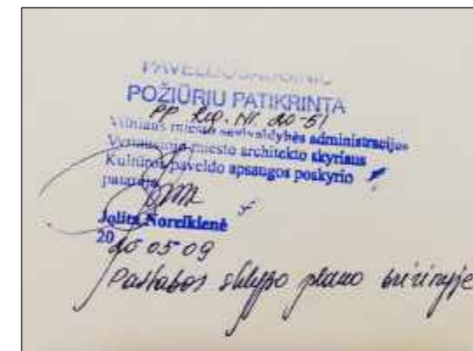 PAVELDOSAUGINIU
POŽIŪRIU PATIKRINTA
PP Reg. Nr. 20-51
Vilniaus miesto savivaldybės administracijos
Vyriausiojo miesto architekto skyriaus
Kultūros paveldo apsaugos poskyrio
patarėja
Jolita Noreikienė
20 05 09
Pastabos sklypo plano brėžinyje